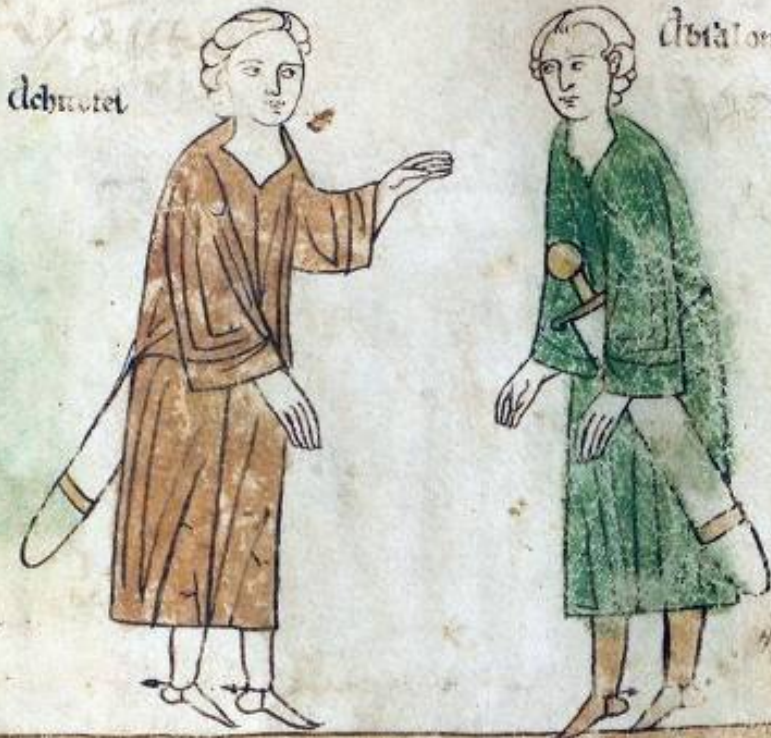 Achitofel
Absalon